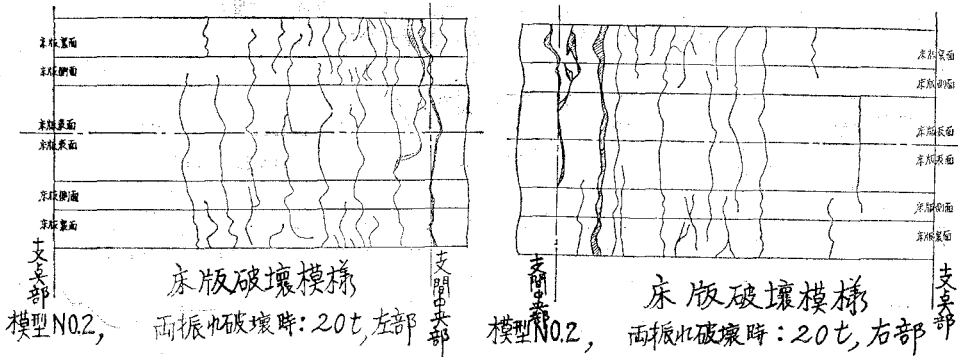 床版裏面
床版側面
床版表面
床版表面
床版側面
床版裏面
支点部
支間中央部
床版破壊模様
模型NO.2, 両振れ破壊時:20t, 左部
床版裏面
床版側面
床版表面
床版表面
床版側面
床版裏面
支間中央部
支点部
床版破壊模様
模型NO.2, 両振れ破壊時:20t, 右部